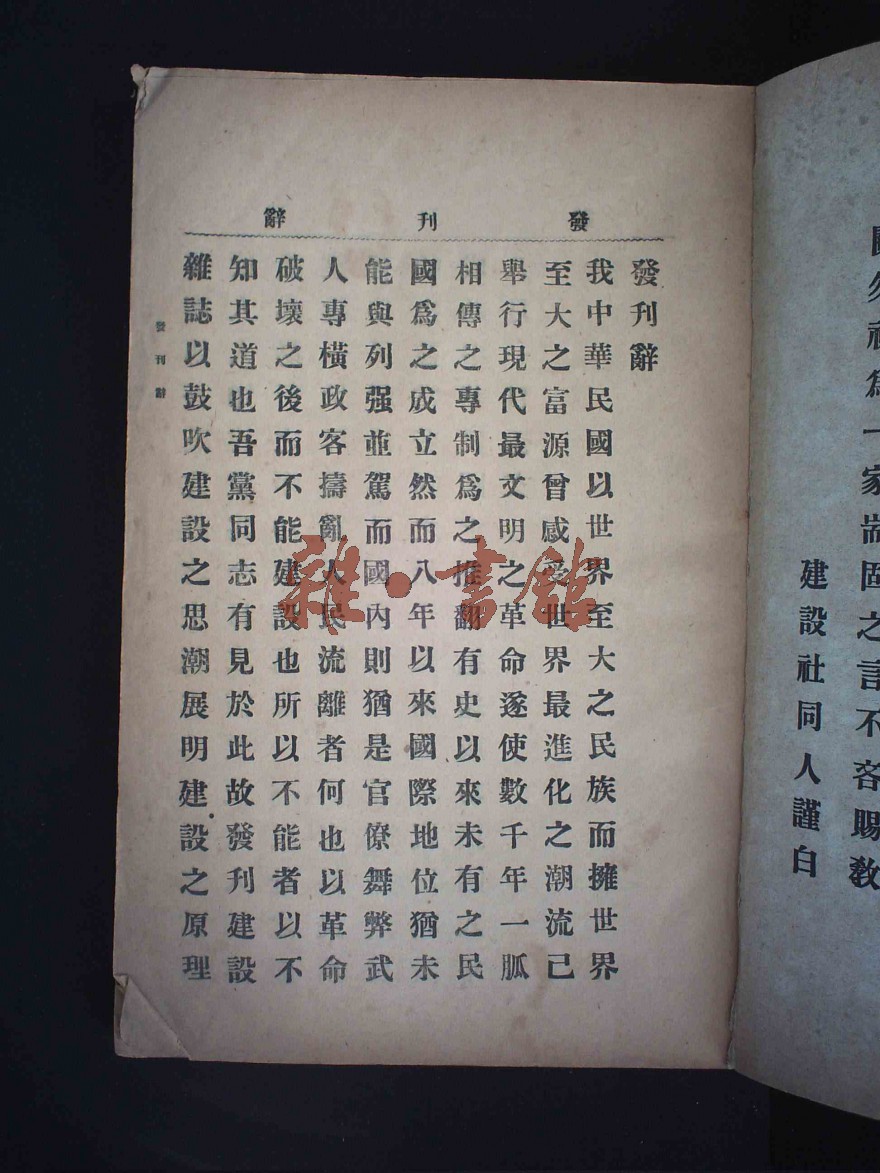 勿視爲一家耑固之言不吝賜敎
建設社同人謹白
發刊辭
發刊辭
我中華民國以世界至大之民族而擁世界
至大之富源曾感受世界最進化之潮流己
舉行現代最文明之革命遂使數千年一脈
相傳之專制爲之推翻有史以來未有之民
國爲之成立然而八年以來國際地位猶未
能與列强並駕而國內則猶是官僚舞弊武
人專橫政客擣亂人民流離者何也以革命
破壞之後而不能建設也所以不能者以不
知其道也吾黨同志有見於此故發刊建設
雜誌以鼓吹建設之思潮展明建設之原理
發刊辭
雜·書館